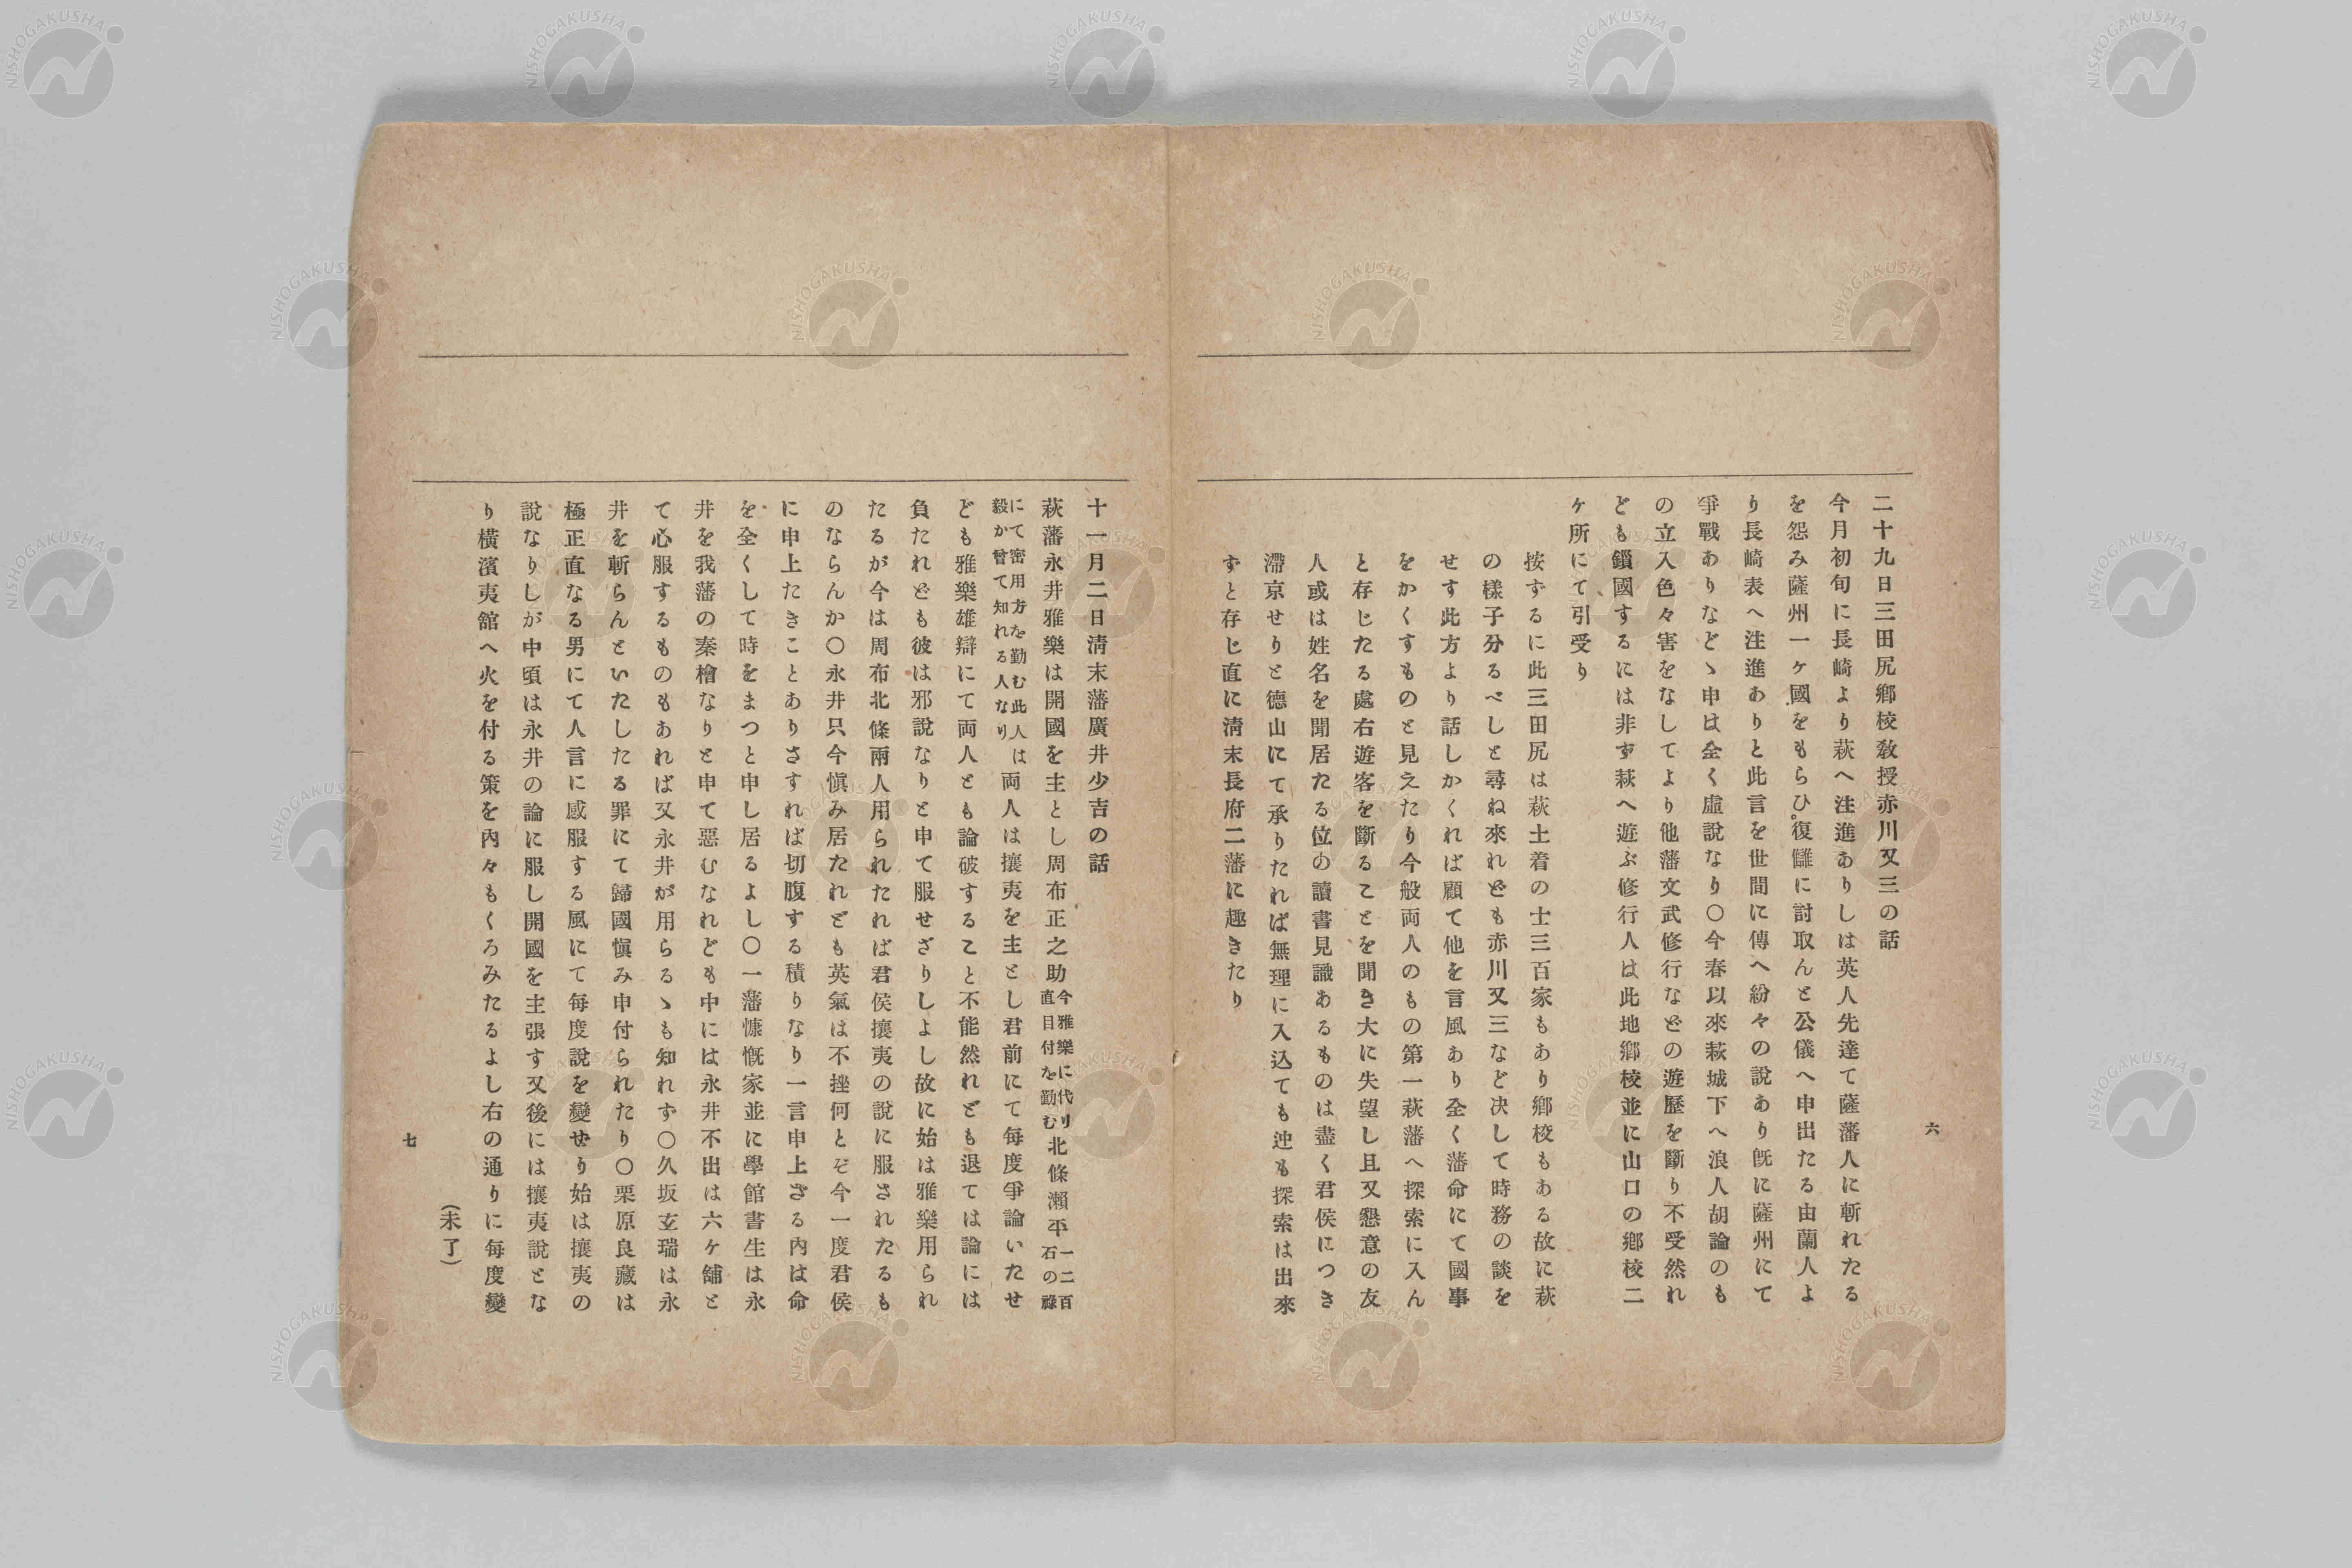 六
二十九日三田尻鄕校敎授赤川又三の話
今月初旬に長崎より萩へ注進ありしは英人先達て薩藩人に斬れたる
を怨み薩州一ヶ國をもらひ。復讎に討取んと公儀へ申出たる由蘭人よ
り長崎表へ注進ありと此言を世間に傳へ紛々の說あり旣に薩州にて
爭戰ありなどゝ申は全く虛說なり〇今春以來萩城下へ浪人胡論のも
の立入色々害をなしてより他藩文武修行などの遊歷を斷り不受然れ
ども鎻國するには非ず萩へ遊ぶ修行人は此地鄕校並に山口の鄕校二
ヶ所にて引受り
按ずるに此三田尻は萩土着の士三百家もあり鄕校もある故に萩
の樣子分るべしと尋ね來れども赤川又三など决して時務の談を
せす此方より話しかくれば顧て他を言風あり全く藩命にて國事
をかくすものと見えたり今般両人のもの第一萩藩へ探索に入ん
と存じたる處右遊客を斷ることを聞き大に失望し且又懇意の友
人或は姓名を聞居たる位の讀書見識あるものは盡く君侯につき
滯京せりと德山にて承りたれば無理に入込ても迚も探索は出來
ずと存じ直に淸末長府二藩に趣きたり
十一月二日淸末藩廣井少吉の話
萩藩永井雅樂は開國を主とし周布正之助今雅樂に代り直目付を勤む北條瀨平一二百石の祿
にて密用方を勤む此人は毅か曾て知れる人なり両人は攘夷を主とし君前にて每度爭論いたせ
ども雅樂雄辯にて両人とも論破すること不能然れども退ては論には
負たれども彼は邪說なりと申て服せざりしよし故に始は雅樂用られ
たるが今は周布北條兩人用られたれば君侯攘夷の說に服されたるも
のならんか〇永井只今愼み居たれども英氣は不挫何とぞ今一度君侯
に申上たきことありさすれば切腹する積りなり一言申上ざる內は命
を全くして時をまつと申し居るよし〇一藩慷慨家並に學館書生は永
井を我藩の秦檜なりと申て惡むなれども中には永井不出は六ケ舖と
て心服するものもあれば又永井が用らるゝも知れず〇久坂玄瑞は永
井を斬らんといたしたる罪にて歸國愼み申付られたり〇栗原良藏は
極正直なる男にて人言に感服する風にて每度說を變せり始は攘夷の
說なりしが中頃は永井の論に服し開國を主張す又後には攘夷說とな
り橫濱夷館へ火を付る策を內々もくろみたるよし右の通りに每度變
(未了)
七
NISHOGAKUSHA